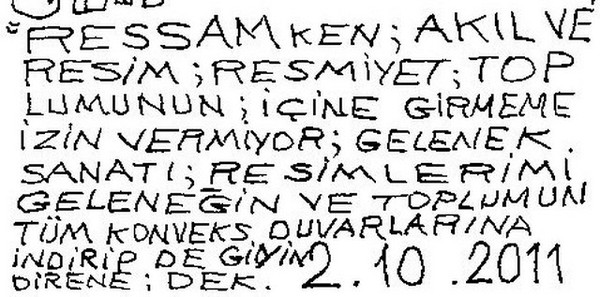 "RESSAMKEN; AKIL VE
RESİM; RESMİYET; TOP
LUMUNUN; İÇİNE GİRMEME
İZİN VERMİYOR; GELENEK.
SANATI; RESİMLERİMİ
GELENEĞİN VE TOPLUMUN
TÜM KONVEKS DUVARLARINA
İNDİRİP DE GİYİM
DİRENE; DEK. 2.10.2011